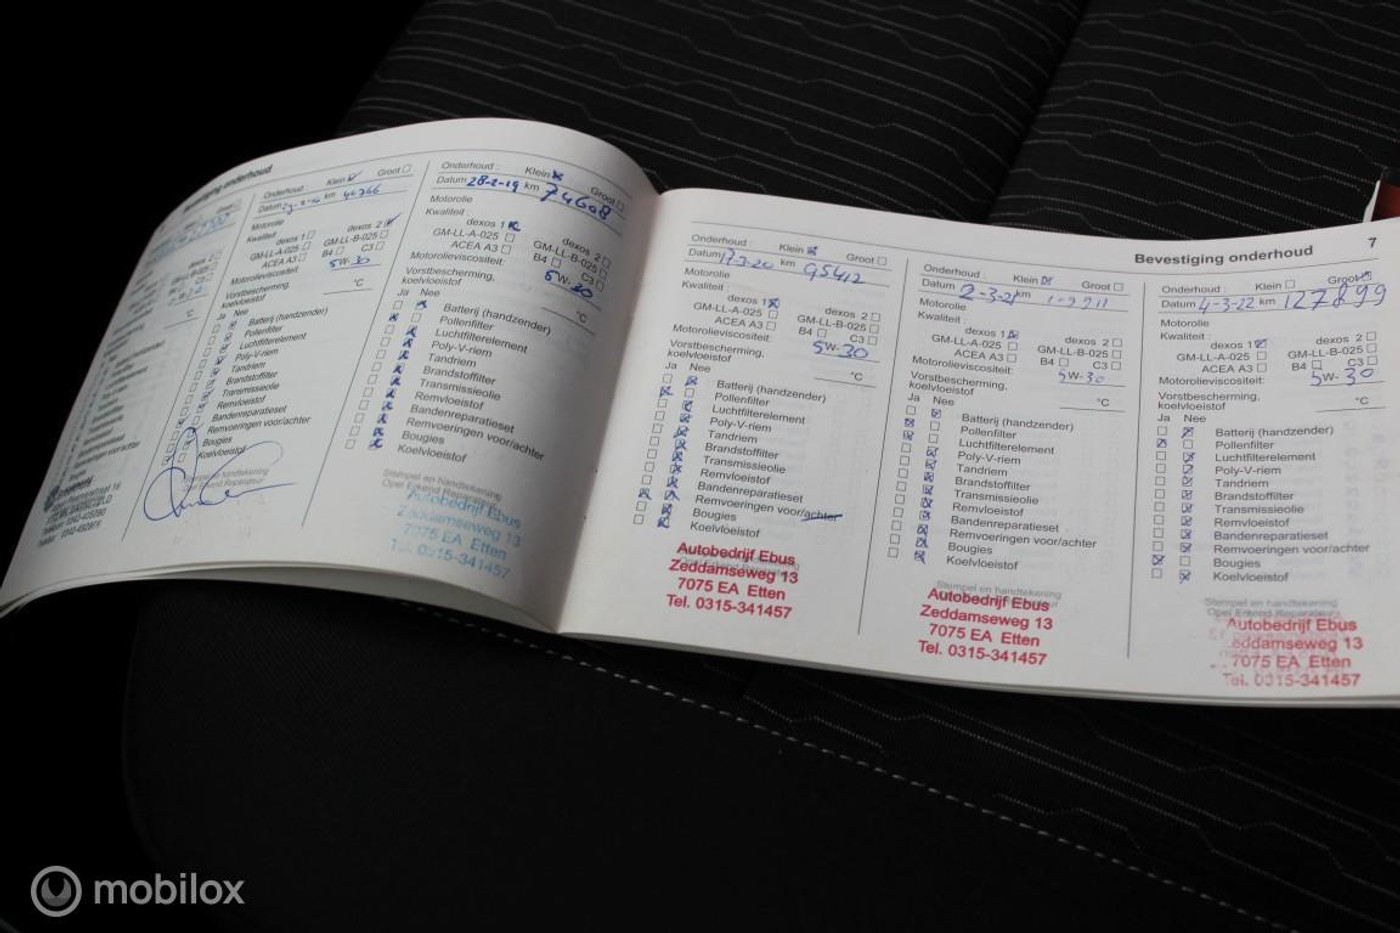 Bevestiging onderhoud
Onderhoud : Klein Groot
Datum km 44766
Motorolie
Kwaliteit dexos 1 dexos 2
GM-LL-A-025 GM-LL-B-025
ACEA A3 B4 C3
Motorolieviscositeit: 5W-30
Vorstbescherming, koelvloeistof °C
Ja Nee
Batterij (handzender)
Pollenfilter
Luchtfilterelement
Poly-V-riem
Tandriem
Brandstoffilter
Transmissieolie
Remvloeistof
Bandenreparatieset
Remvoeringen voor/achter
Bougies
Koelvloeistof
Stempel en handtekening
Opel Erkend Reparateur
Onderhoud : Klein Groot
Datum 28-2-19 km 74608
Motorolie
Kwaliteit :
dexos 1 dexos 2
GM-LL-A-025 GM-LL-B-025
ACEA A3 B4 C3
Motorolieviscositeit: 5W-30
Vorstbescherming, koelvloeistof °C
Ja Nee
Batterij (handzender)
Pollenfilter
Luchtfilterelement
Poly-V-riem
Tandriem
Brandstoffilter
Transmissieolie
Remvloeistof
Bandenreparatieset
Remvoeringen voor/achter
Bougies
Koelvloeistof
Stempel en handtekening
Opel Erkend Reparateur
Autobedrijf Ebus
Zeddamseweg 13
7075 EA Etten
Tel. 0315-341457
7
Bevestiging onderhoud
Onderhoud : Klein Groot
Datum 17-3-20 km 95412
Motorolie
Kwaliteit :
dexos 1 dexos 2
GM-LL-A-025 GM-LL-B-025
ACEA A3 B4 C3
Motorolieviscositeit: 5W-30
Vorstbescherming,
koelvloeistof °C
Ja Nee
Batterij (handzender)
Pollenfilter
Luchtfilterelement
Poly-V-riem
Tandriem
Brandstoffilter
Transmissieolie
Remvloeistof
Bandenreparatieset
Remvoeringen voor/achter
Bougies
Koelvloeistof
Autobedrijf Ebus
Zeddamseweg 13
7075 EA Etten
Tel. 0315-341457
Onderhoud : Klein Groot
Datum 2-3-21 km
Motorolie
Kwaliteit :
dexos 1 dexos 2
GM-LL-A-025 GM-LL-B-025
ACEA A3 B4 C3
Motorolieviscositeit: 5W-30
Vorstbescherming,
koelvloeistof °C
Ja Nee
Batterij (handzender)
Pollenfilter
Luchtfilterelement
Poly-V-riem
Tandriem
Brandstoffilter
Transmissieolie
Remvloeistof
Bandenreparatieset
Remvoeringen voor/achter
Bougies
Koelvloeistof
Stempel en handtekening
Autobedrijf Ebus
Zeddamseweg 13
7075 EA Etten
Tel. 0315-341457
Onderhoud : Klein Groot
Datum 4-3-22 km 127899
Motorolie
Kwaliteit :
dexos 1 dexos 2
GM-LL-A-025 GM-LL-B-025
ACEA A3 B4 C3
Motorolieviscositeit: 5W-30
Vorstbescherming,
koelvloeistof °C
Ja Nee
Batterij (handzender)
Pollenfilter
Luchtfilterelement
Poly-V-riem
Tandriem
Brandstoffilter
Transmissieolie
Remvloeistof
Bandenreparatieset
Remvoeringen voor/achter
Bougies
Koelvloeistof
Stempel en handtekening
Opel Erkend Reparateur
Autobedrijf Ebus
Zeddamseweg 13
7075 EA Etten
Tel. 0315-341457
mobilox